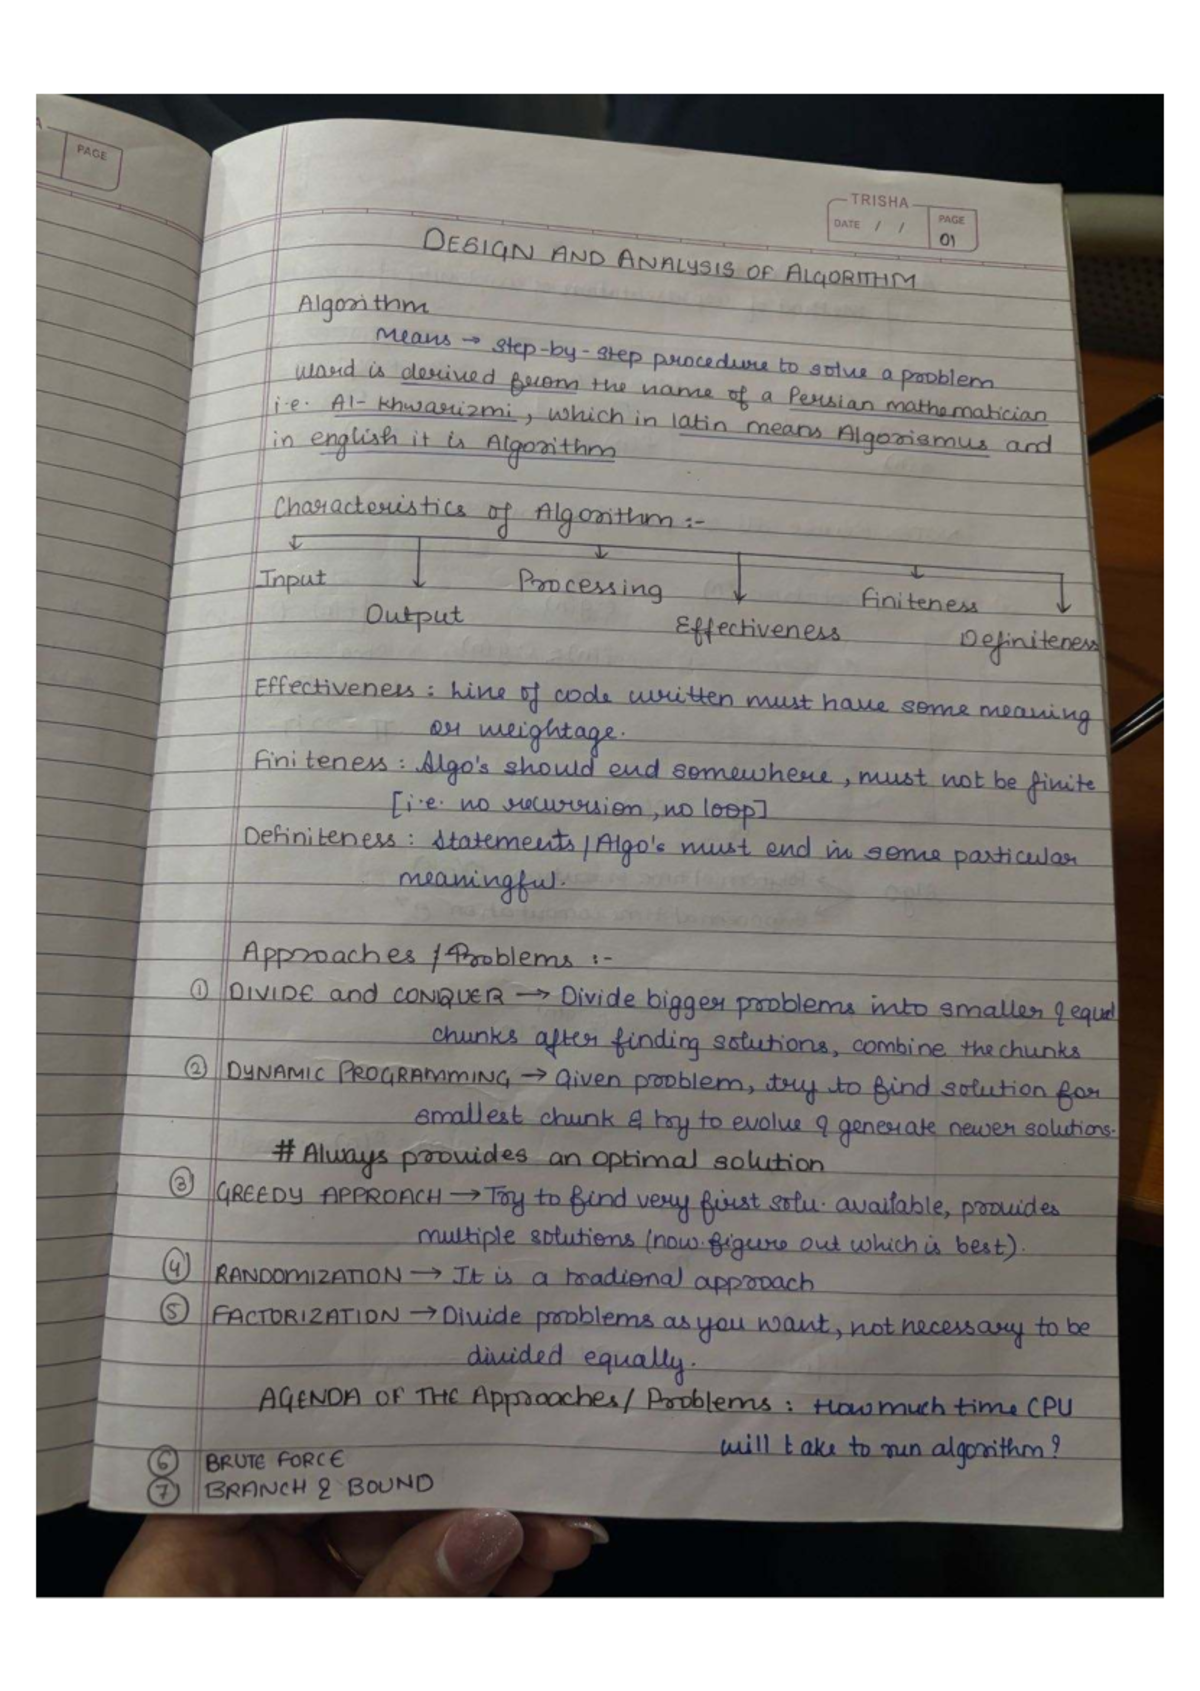 PAGE
TRISHA
DATE / /
PAGE
01
DESIGN AND ANALYSIS OF ALGORITHM
Algorithm
Means → step-by-step procedure to solve a problem
word is derived from the name of a Persian mathematician
i.e. Al-Khwarizmi, which in latin means Algorismus and
in english it is Algorithm
Characteristics of Algorithm :-
Input
Output
Processing
Effectiveness
Finiteness
Definiteness
Effectiveness : Line of code written must have some meaning
or weightage.
Finiteness : Algo's should end somewhere, must not be finite
[i.e. no recurrsion, no loop]
Definiteness : Statements/Algo's must end in some particular
meaningful.
Approaches / Problems :-
① DIVIDE and CONQUER → Divide bigger problems into smaller & equal
chunks after finding solutions, combine the chunks
② DYNAMIC PROGRAMMING → Given problem, try to find solution for
smallest chunk & try to evolve & generate newer solutions.
# Always provides an optimal solution
③ GREEDY APPROACH → Try to find very first solu. available, provides
multiple solutions (now figure out which is best).
④ RANDOMIZATION → It is a tradional approach
⑤ FACTORIZATION → Divide problems as you want, not necessary to be
divided equally.
AGENDA OF THE Approaches / Problems : How much time CPU
will take to run algorithm?
⑥ BRUTE FORCE
⑦ BRANCH & BOUND